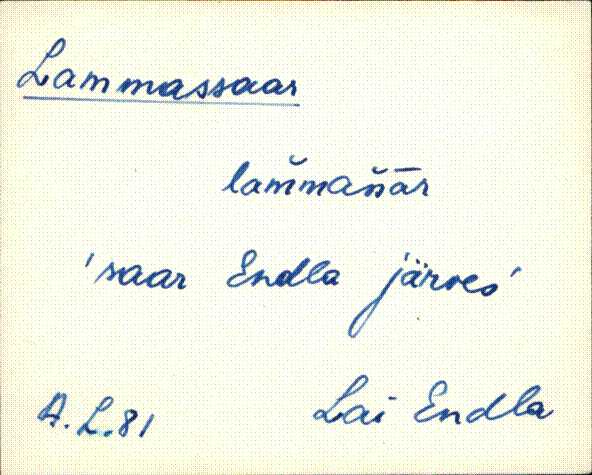 Lammassaar
lam̆mas̆sār
'saar Endla järves'
A. L. 81 Lai Endla